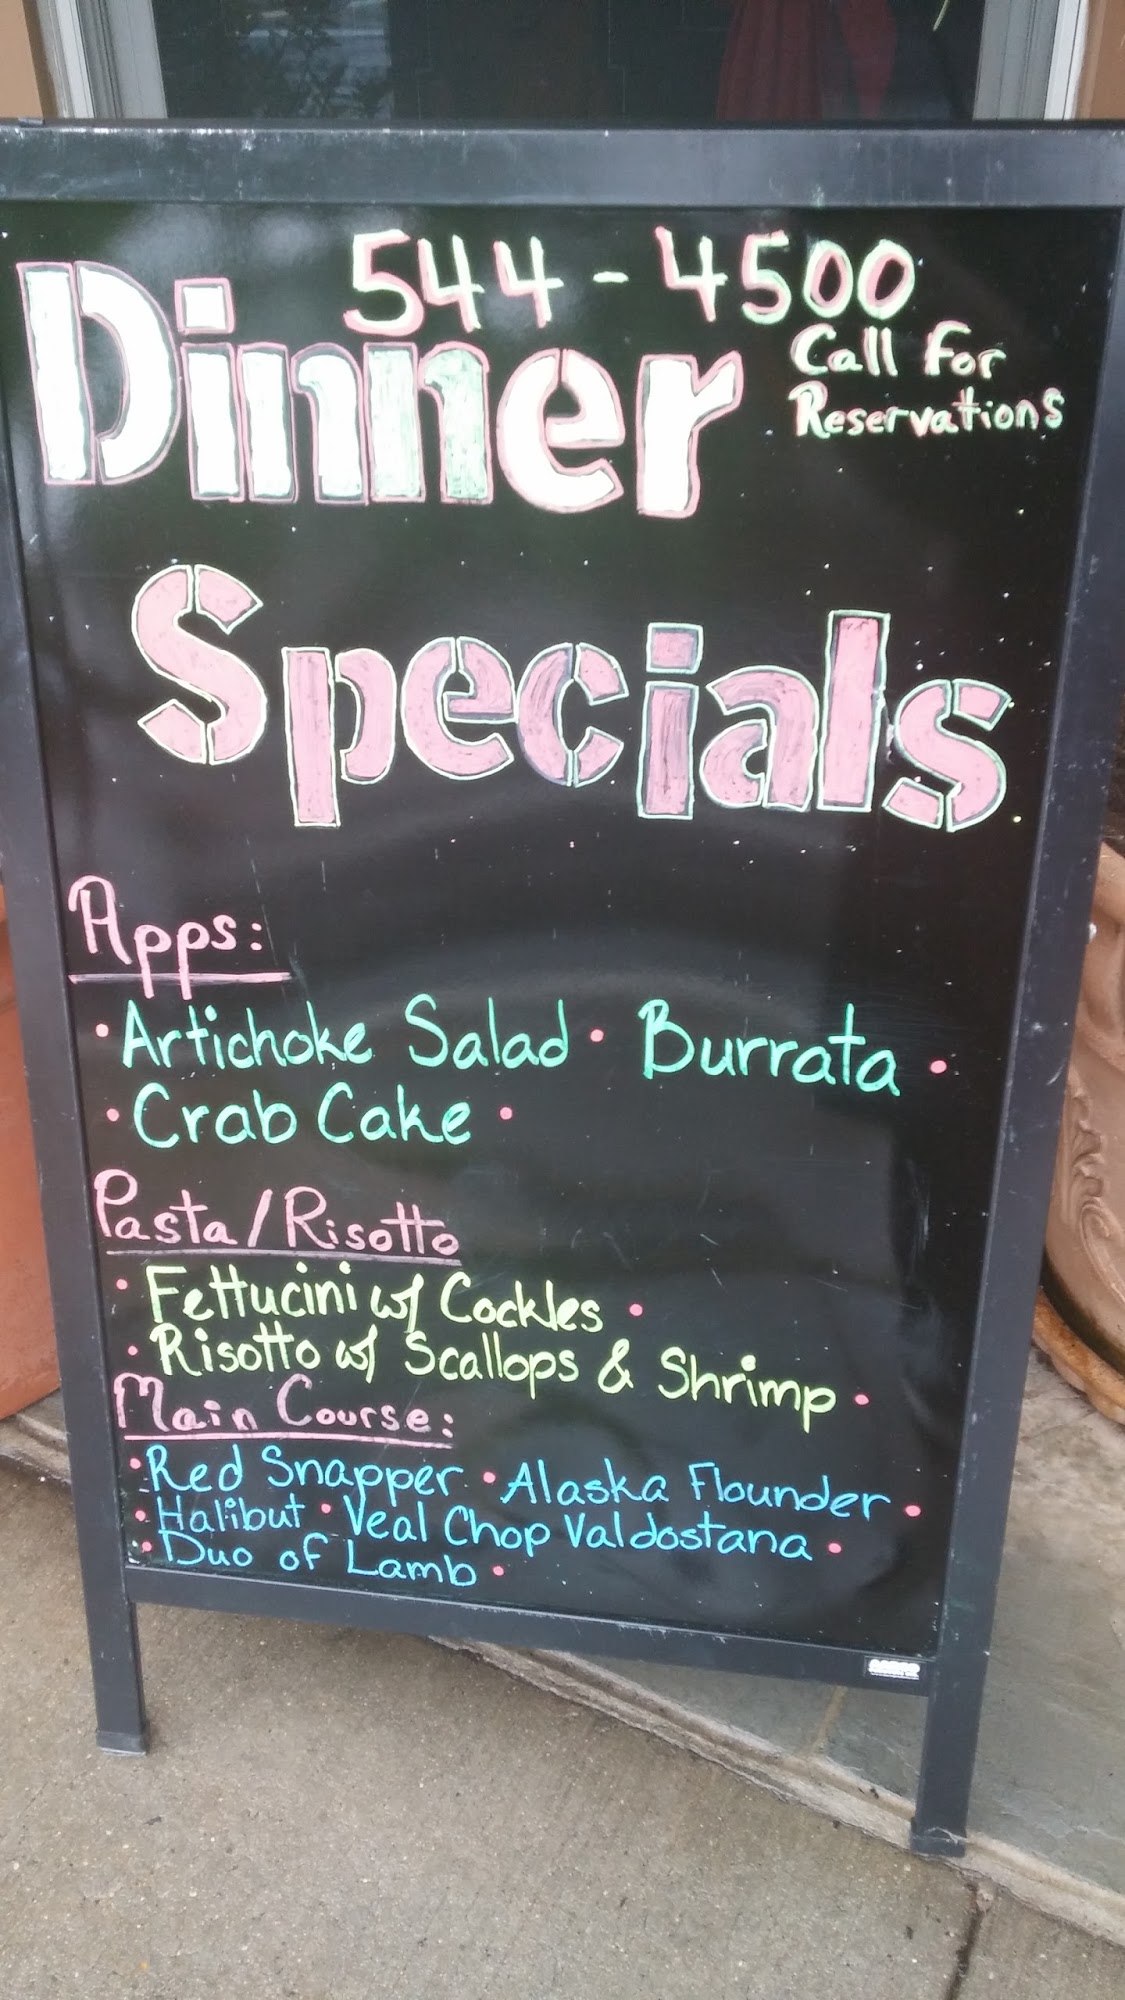 544-4500
Dinner
Call for
Reservations
Specials
Apps:
• Artichoke Salad • Burrata •
• Crab Cake •
Pasta/Risotto
• Fettucini w/ Cockles •
• Risotto w/ Scallops & Shrimp •
Main Course:
• Red Snapper • Alaska Flounder •
• Halibut • Veal Chop Valdostana •
• Duo of Lamb •